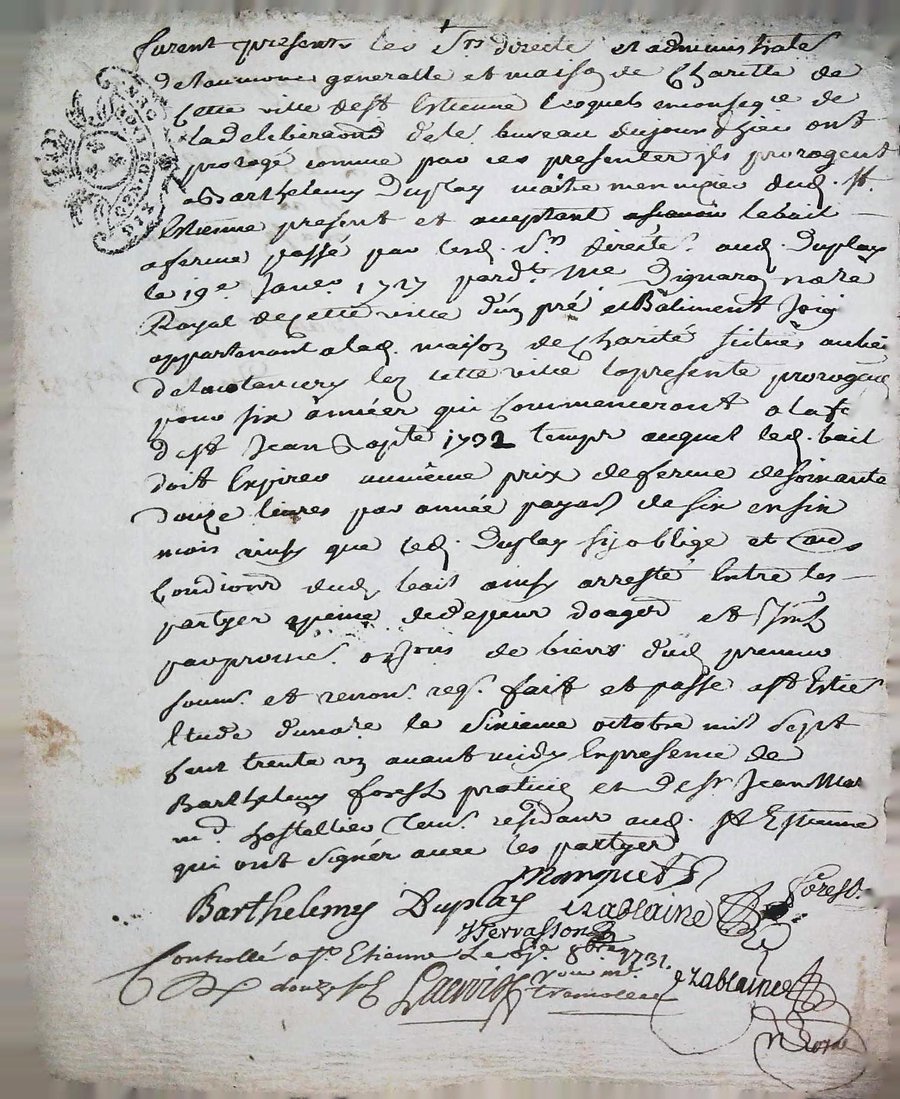 furent presents les Srs directrs et administrates
de laumone generalle et maison de Charitté de
Cette ville de St Estienne lesquels en conseqce de
la deliberaon de le bureau du jour dhier ont
prorogé comme par ces presentes ils prorogent
a Barthelemy Duplay maitre menuizier dud. St.
Estienne present et aceptant le bail
a ferme passé par lesd. Srs directrs aud. Duplay
le 19e Janer 1727 pardt Me nore
Royal de cette ville d'un pré et Bâtiment joig
appartenant a lad. maison de Charité situés au lieu
de lez cette ville la presente prorogaon
pour six années qui Commenceront a la fe
de St Jean Bapte 1732 temps auquel led. bail
doit Expirer au même prix de ferme de soixante
douze livres par année payab de six en six
mois ainsy que led. Duplay s'y oblige et aux
Condions dud. bail ainsy arresté Entre les
partyes a peine de depens domages et Intz
par promes. de biens dud. preneur
soums. et renons. reqs. fait et passé a St Estiene
Etude du nore le Sixieme octobre mil sept
Cent trente un avant midy En presence de
Barthelemy forest praticien et de Sr Jean Mar
md hostellier resident aud. St Estienne
qui ont signés avec les partyes
Barthelemy Duplay
forest
Terrasson
Controllé a St Etienne Le 8bre 1731.
douze s